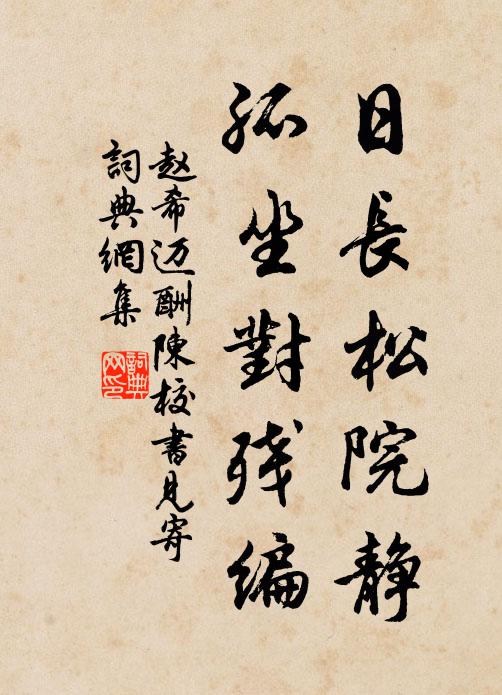 日長松院靜
孤坐對残編
赵希迈酬陳校書見寄
詞典網集
詞典网印